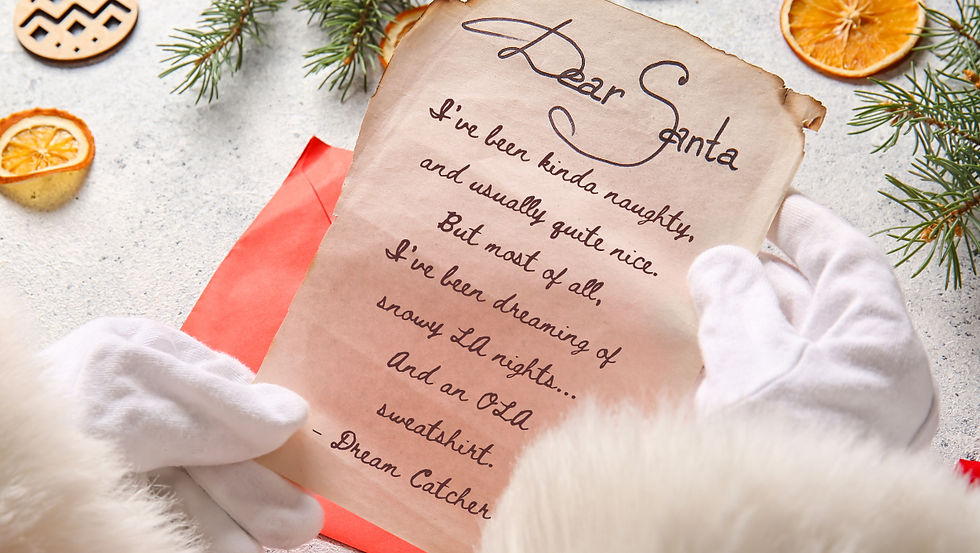 Dear Santa
I've been kinda naughty,
and usually quite nice.
But most of all,
I've been dreaming of
snowy LA nights...
And an OLA
sweatshirt.
- Dream Catcher